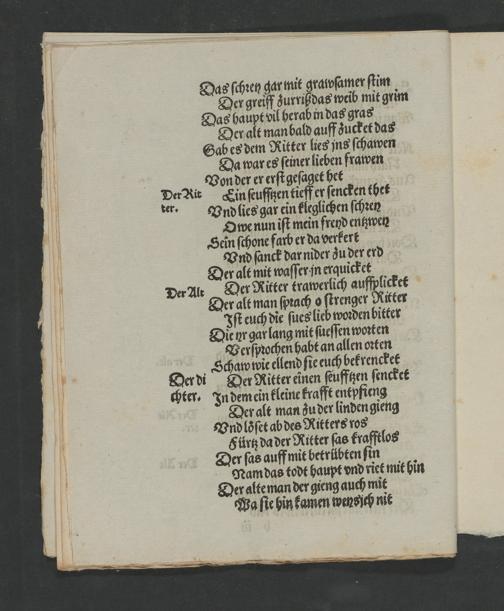 Das schrey gar mit grawsamer stim
Der greiff zurrißdas weib mit grim
Das haupt vil herab in das gras
Der alt man bald auff zucket das
Gab es dem Ritter lies jns schawen
Da war es seiner lieben frawen
Von der er erst gesaget het
Der Rit
ter.
Ein seufftzen tieff er sencken thet
Vnd lies gar ein kleglichen schrey
Owe nun ist mein freyd entzwey
Sein schone farb er da verkert
Vnd sanck dar nider zu der erd
Der alt mit wasser jn erquicket
Der Alt
Der Ritter trawerlich auffplicket
Der alt man sprach o strenger Ritter
Jst euch die sues lieb worden bitter
Die yr gar lang mit suessen worten
Versprochen habt an allen orten
Schaw wie ellend sie euch bekrencket
Der di
chter.
Der Ritter einen seufftzen sencket
Jn dem ein kleine krafft entpfieng
Der alt man zu der linden gieng
Vnd löset ab des Ritters ros
Fürtz da der Ritter sas krafftlos
Der sas auff mit betrübten sin
Nam das todt haupt vnd riet mit hin
Der alte man der gieng auch mit
Wa sie hin kamen weys jch nit